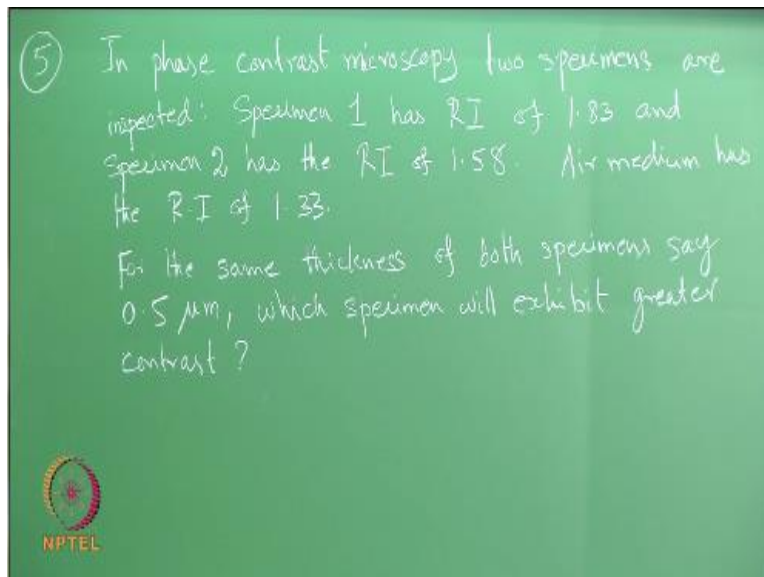 5 In phase contrast microscopy two specimens are
inspected: Specimen 1 has RI of 1.83 and
Specimen 2 has the RI of 1.58. Air medium has
the R.I of 1.33.
For the same thickness of both specimens say
0.5 µm, which specimen will exhibit greater
contrast?
NPTEL